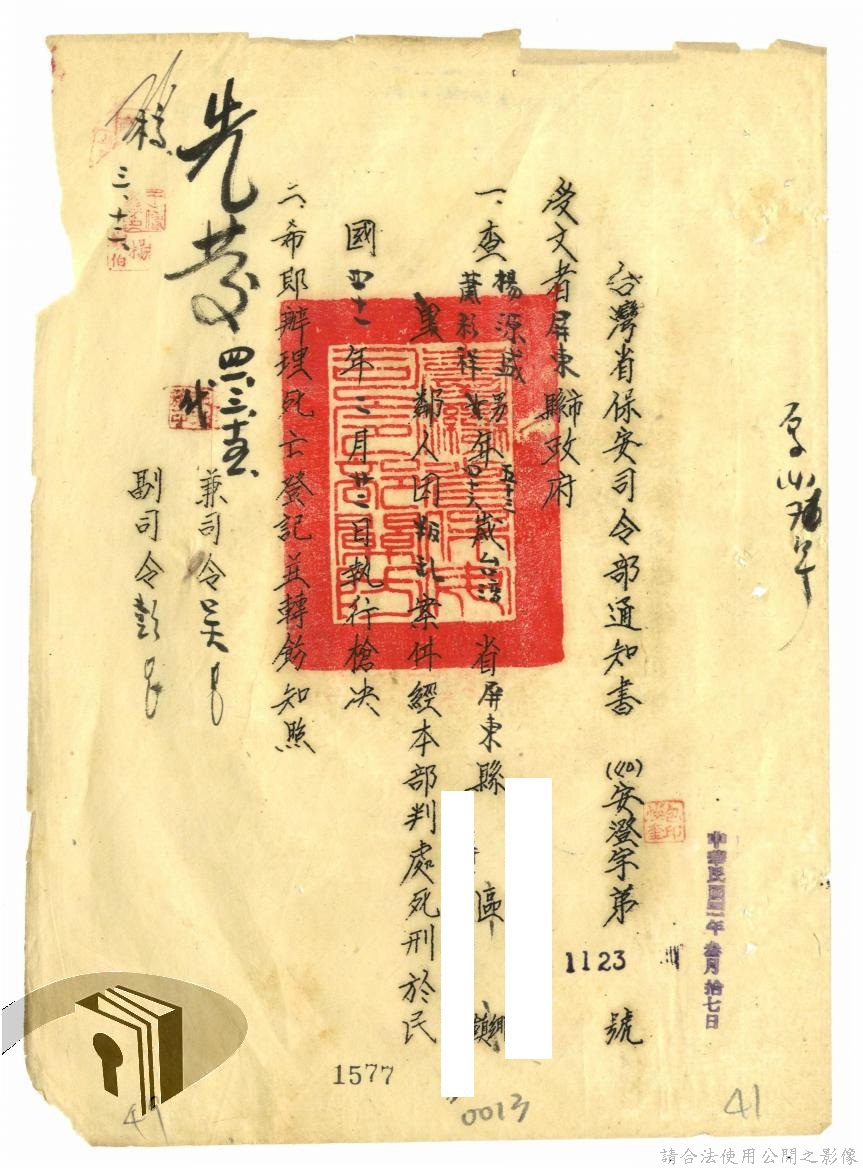 台灣省保安司令部通知書 (40)安澄字第1123號
中華民國四一年叁月拾七日
受文者屏東縣市政府
一、查楊源盛 蕭彩祥 男 女 年五十三 四十六歲台灣省屏東縣 區 鄉鎮
里 鄰人因叛乱案件經本部判處死刑於民
國四十一年二月廿二日執行槍决
二、希即辦理死亡登記並轉飭知照
兼司令吳
副司令彭
先發
四、三、十五
代
稿
三、十三
1577
0013
41
41
請合法使用公開之影像